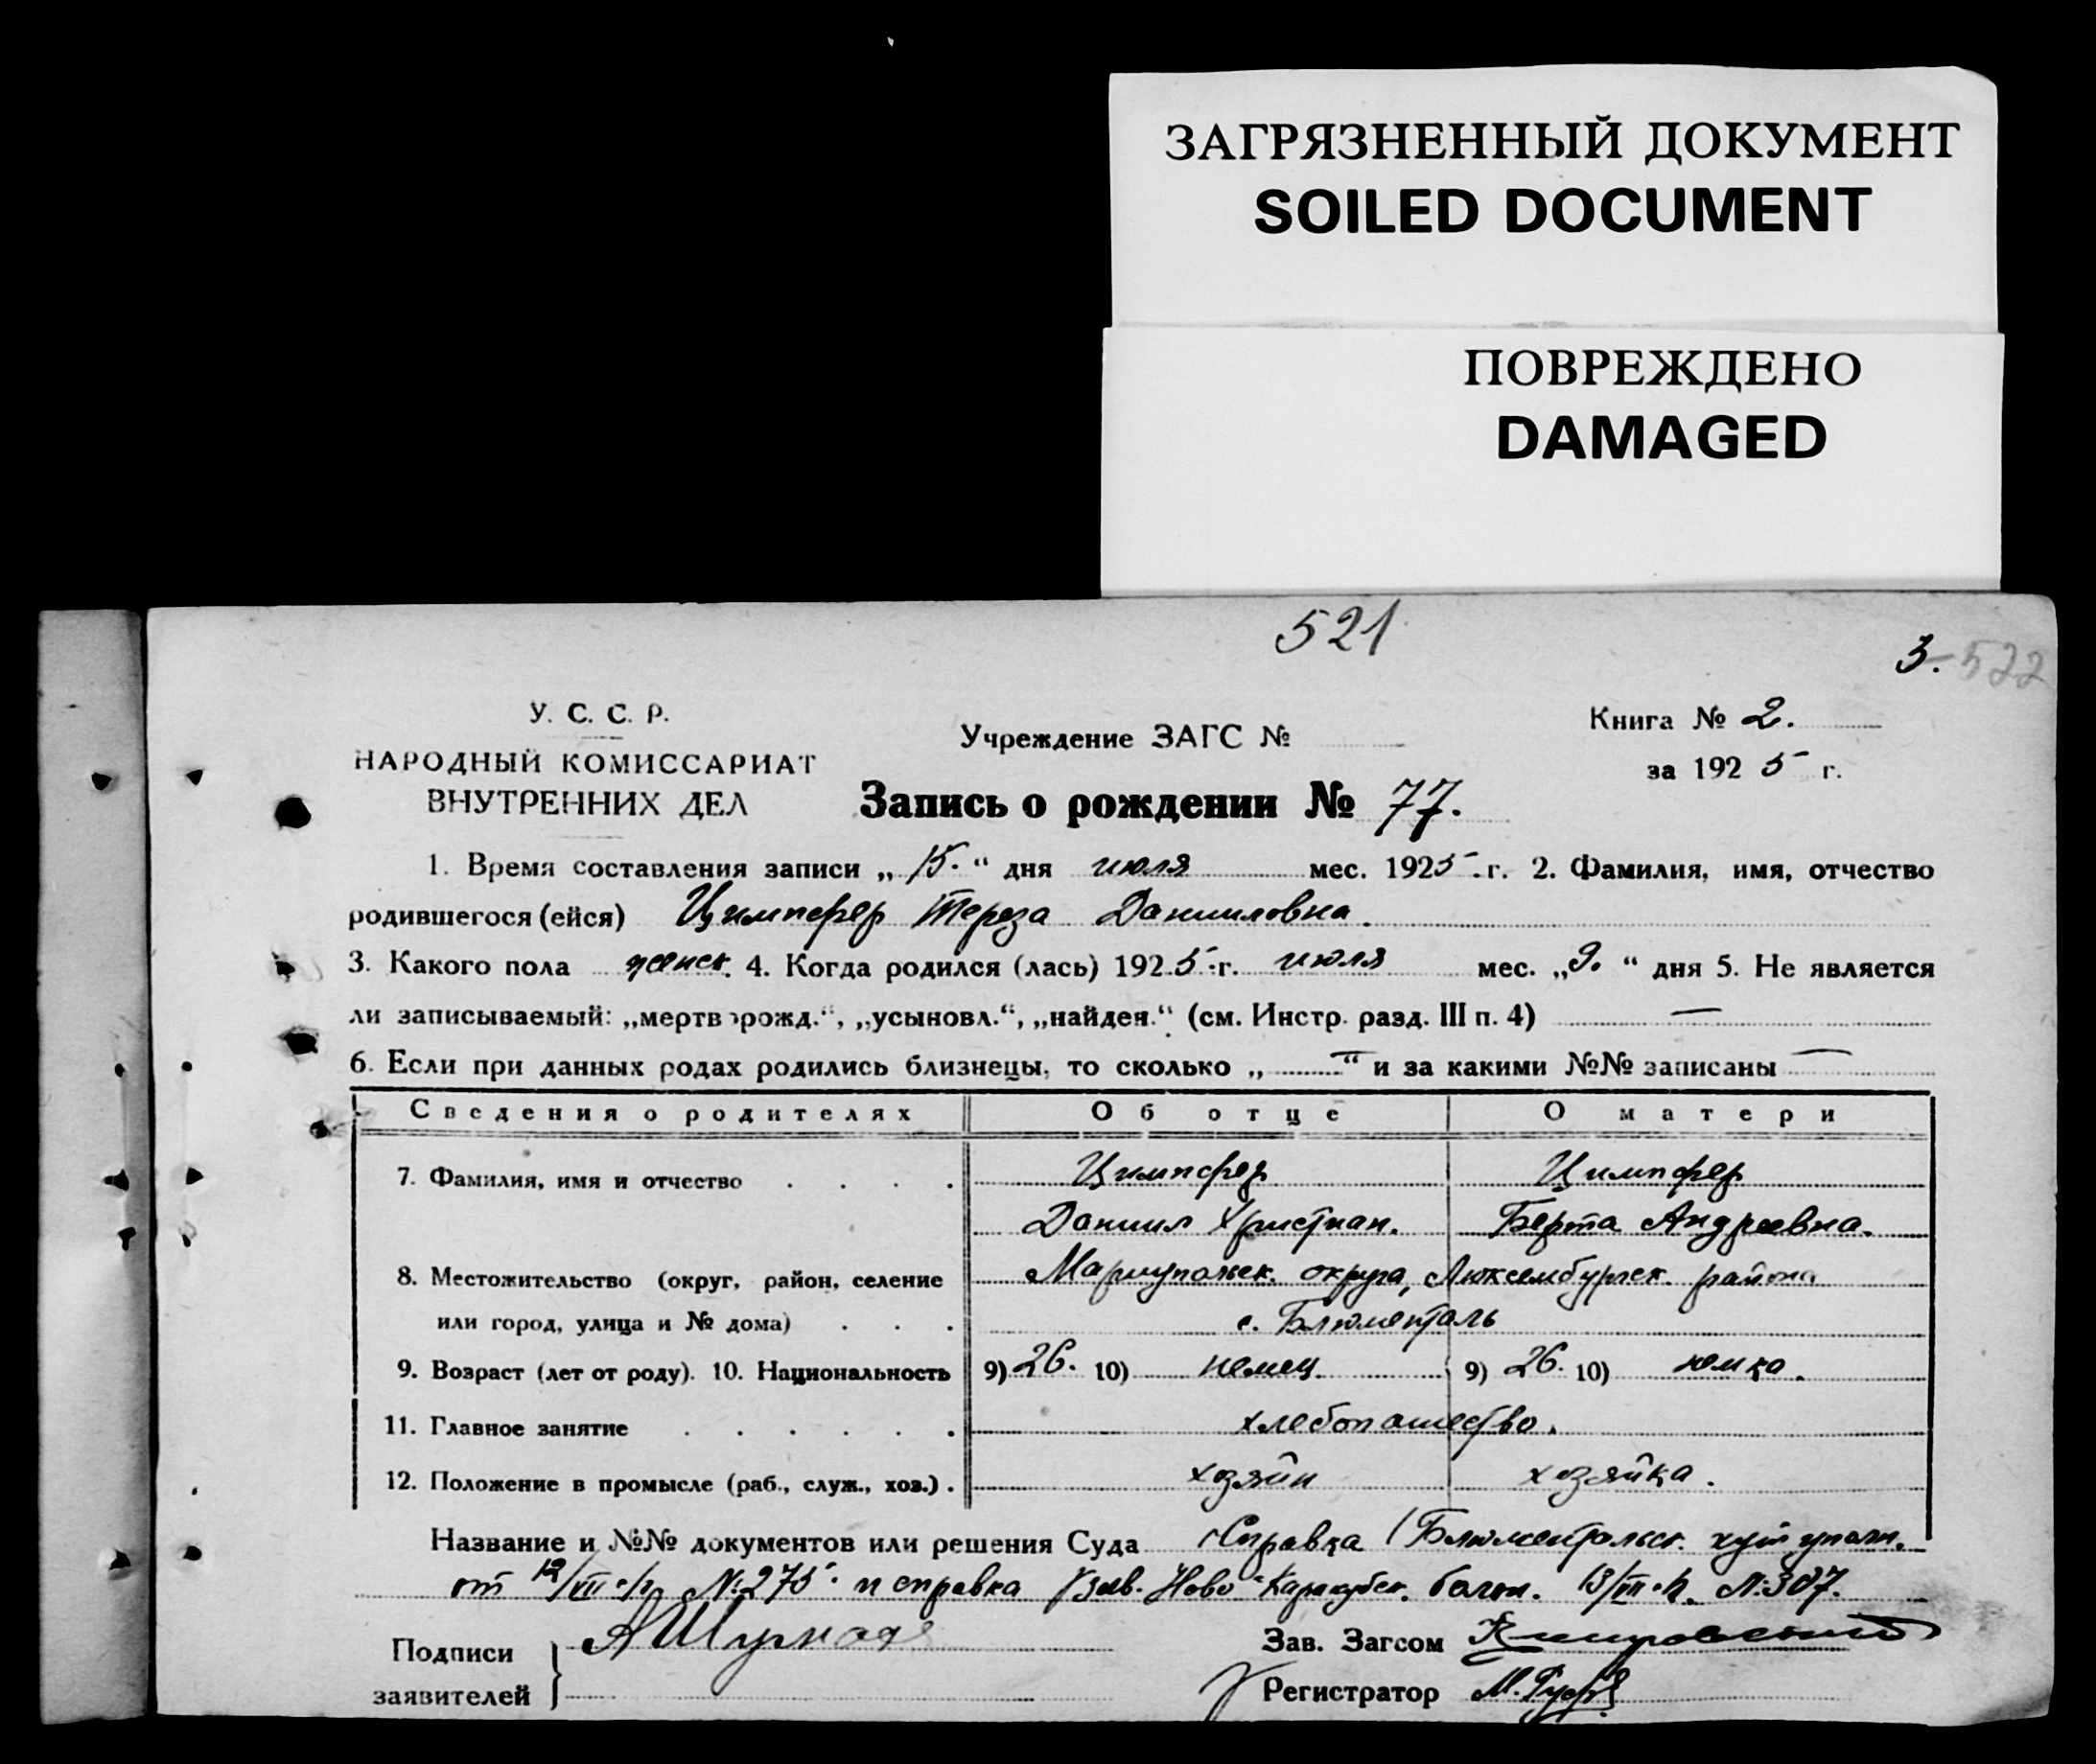 ЗАГРЯЗНЕННЫЙ ДОКУМЕНТ
SOILED DOCUMENT
ПОВРЕЖДЕНО
DAMAGED
521
3. 522
У. С. С. Р.
НАРОДНЫЙ КОМИССАРИАТ
ВНУТРЕННИХ ДЕЛ
Учреждение ЗАГС №
Книга № 2.
за 1925 г.
Запись о рождении № 77.
1. Время составления записи „ 15. “ дня июля мес. 1925 г. 2. Фамилия, имя, отчество
родившегося (ейся) Цимпфер Тереза Данииловна.
3. Какого пола женск. 4. Когда родился (лась) 1925 г. июля мес. „9. “ дня 5. Не является
ли записываемый: „мертворожд.“, „усыновл.“, „найден.“ (см. Инстр. разд. III п. 4) —
6. Если при данных родах родились близнецы, то сколько „ — “ и за какими №№ записаны —
Сведения о родителях Об отце О матери
7. Фамилия, имя и отчество . . . . Цимпфер Цимпфер
Даниил Христиан. Берта Андреевна.
8. Местожительство (округ, район, селение Мариупольск. округа, Люксембургск. района
или город, улица и № дома) . . . с. Блюменталь
9. Возраст (лет от роду). 10. Национальность 9) 26. 10) немец. 9) 26. 10) немка.
11. Главное занятие . . . . . . хлебопашество.
12. Положение в промысле (раб., служ., хоз.) . хозяин хозяйка.
Название и №№ документов или решения Суда Справка Блюментальск.
от 12/VII №275 и справка Ново-Каракубск. 13/VII №307.
Подписи
заявителей
Зав. Загсом
Регистратор